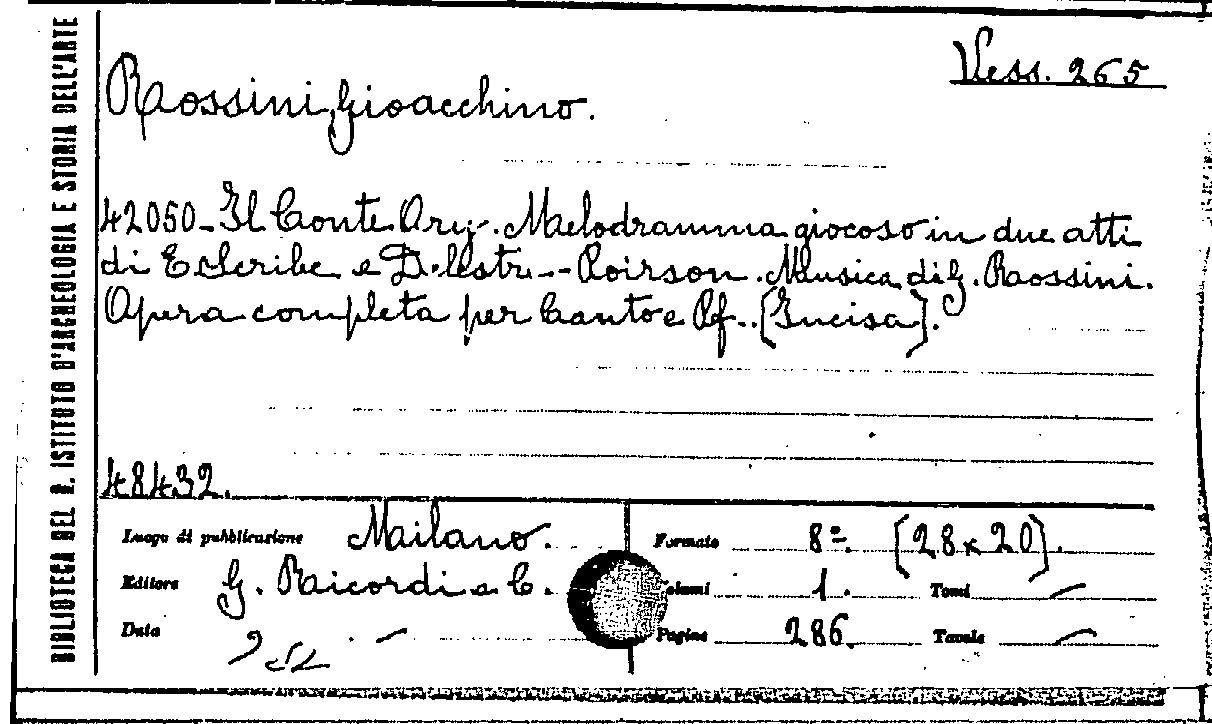 BIBLIOTECA DEL R. ISTITUTO D'ARCHEOLOGIA E STORIA DELL'ARTE
Vess. 265
Rossini, Gioacchino.
42050 - Il Conte Ory. Melodramma giocoso in due atti
di E. Scribe e D. Lestr. - Poirson. Musica di G. Rossini.
Opera completa per Canto e Pf. [Incisa].
48432.
Luogo di pubblicazione Milano.
Formato 8º. [28 x 20].
Editore G. Ricordi e C.
Volumi 1. Tomi —
Data
Pagine 286 Tavole —